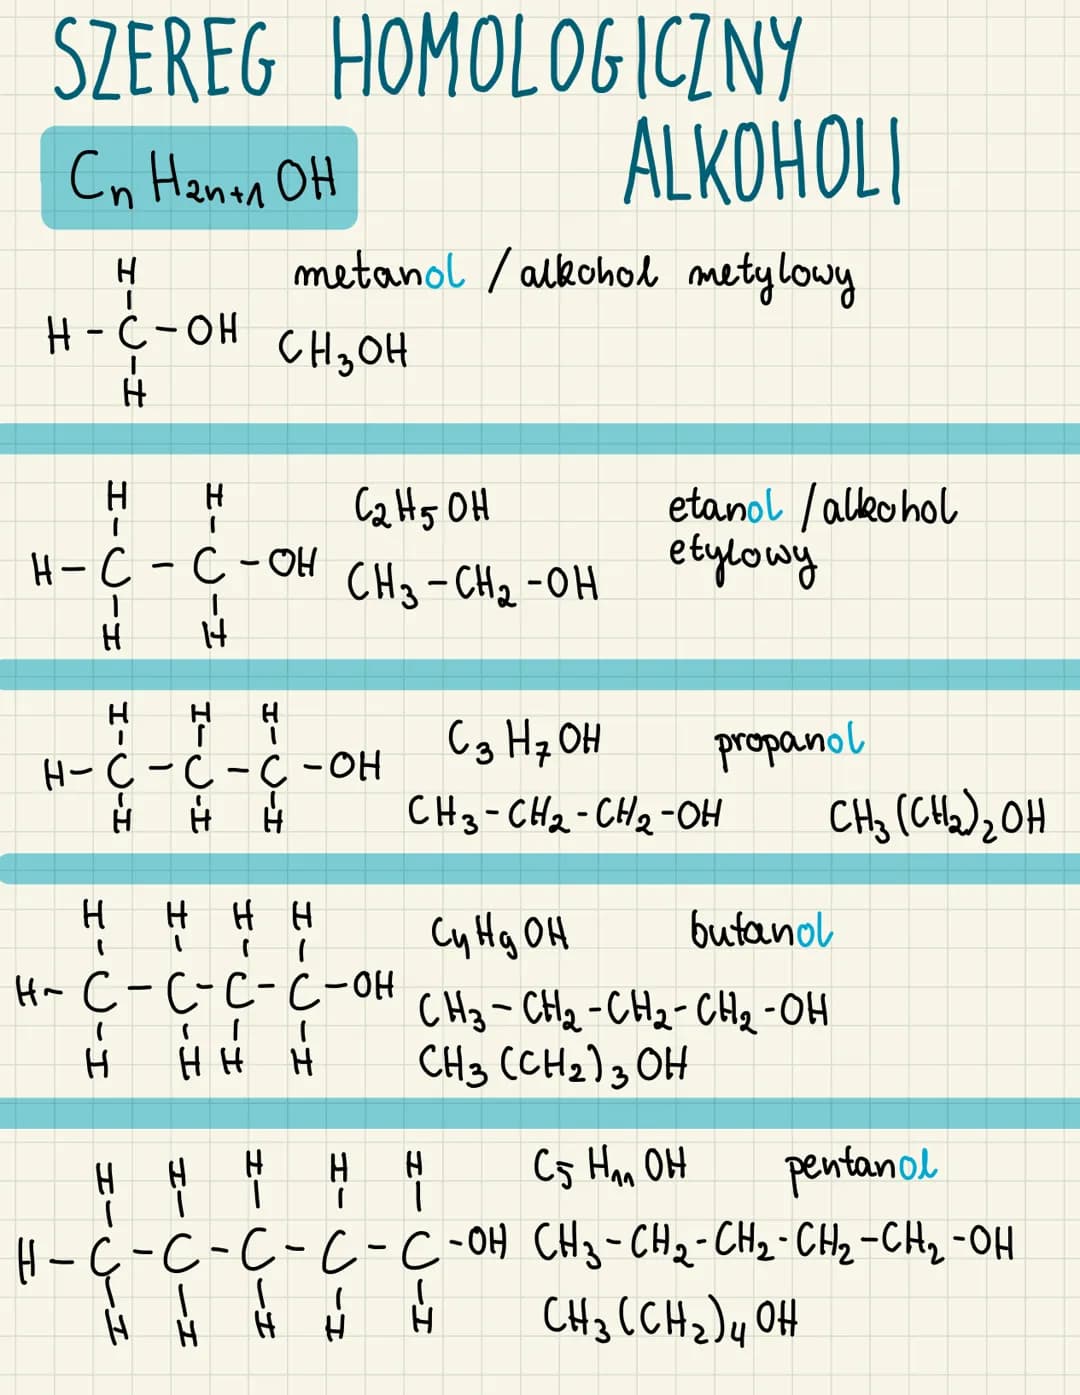 SZEREG HOMOLOGICZNY
ALKOHOLI
CnH2n+1OH
metanol / alkohol metylowy
H
H - C - OH
H
CH3OH
H H
H - C - C - OH
H H
C2H5OH
CH3 - CH2 - OH
etanol / alkohol
etylowy
H H H
H - C - C - C - OH
H H H
C3H7OH
propanol
CH3 - CH2 - CH2 - OH
CH3(CH2)2OH
H H H H
H - C - C - C - C - OH
H H H H
C4H9OH
butanol
CH3 - CH2 - CH2 - CH2 - OH
CH3(CH2)3OH
H H H H H
H - C - C - C - C - C - OH
H H H H H
C5H11OH
pentanol
CH3 - CH2 - CH2 - CH2 - CH2 - OH
CH3(CH2)4OH